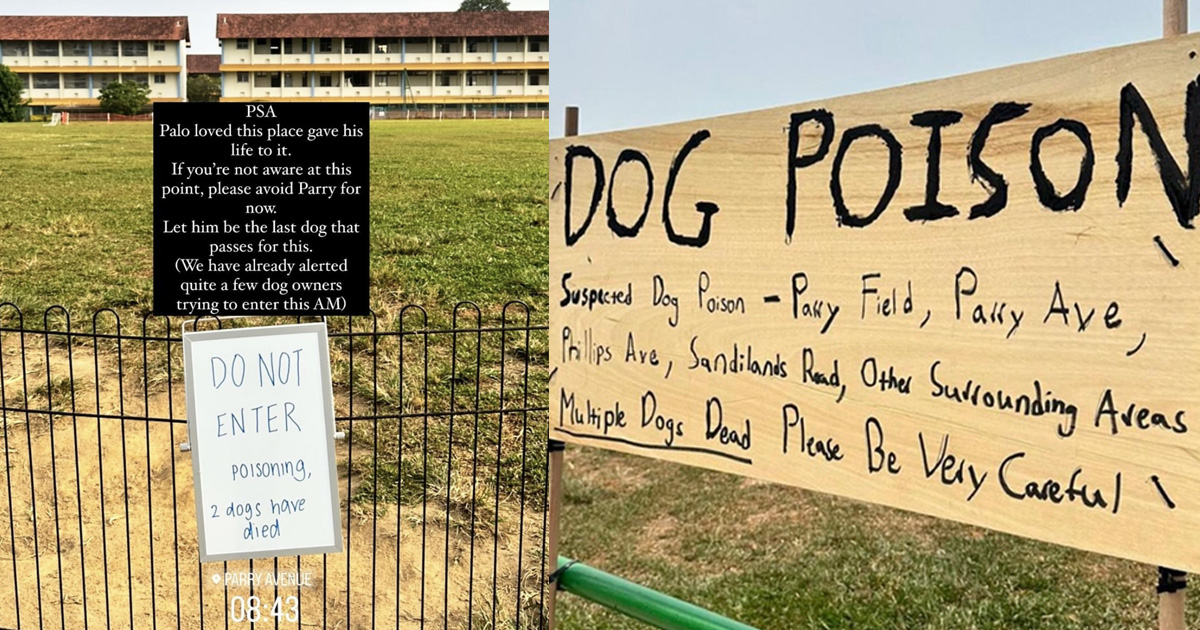 PSA
Palo loved this place gave his
life to it.
If you're not aware at this
point, please avoid Parry for
now.
Let him be the last dog that
passes for this.
(We have already alerted
quite a few dog owners
trying to enter this AM)
DO NOT
ENTER
poisoning,
2 dogs have
died
PARRY AVENUE
08:43
DOG POISON
Suspected Dog Poison - Parry Field, Parry Ave,
Phillips Ave, Sandilands Road, Other Surrounding Areas
Multiple Dogs Dead Please Be Very Careful